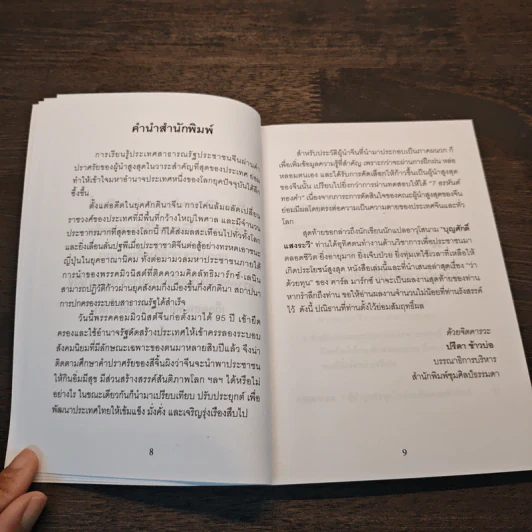 คำนำสำนักพิมพ์
การเรียนรู้ประเทศสาธารณรัฐประชาชนจีนผ่านคำ
ปราศรัยของผู้นำสูงสุดในวาระสำคัญที่สุดของประเทศ ย่อม
ทำให้เข้าใจมหาอำนาจประเทศหนึ่งของโลกยุคปัจจุบันได้ลึก
ซึ้งขึ้น
ตั้งแต่อดีตในยุคศักดินาจีน การโค่นล้มผลัดเปลี่ยน
ราชวงศ์ของประเทศที่มีพื้นที่กว้างใหญ่ไพศาล และมีจำนวน
ประชากรมากที่สุดของโลกนี้ ก็ได้ส่งผลสะเทือนไปทั่วทั้งโลก
และยิ่งเลื่อนลั่นปฐพีเมื่อประชาชาติจีนต่อสู้อย่างทรหดเอาชนะ
ญี่ปุ่นในยุคอาณานิคม ทั้งต่อมามวลมหาประชาชนภายใต้
การนำของพรรคคอมมิวนิสต์ที่ติดความคิดลัทธิมาร์กซ์-เลนิน
สามารถปฏิวัติก้าวผ่านยุคสังคมกึ่งเมืองขึ้นกึ่งศักดินา สถาปนา
การปกครองระบอบสาธารณรัฐได้สำเร็จ
วันนี้พรรคคอมมิวนิสต์จีนก่อตั้งมาได้ 95 ปี เข้ายึด
ครองและใช้อำนาจรัฐดัดสร้างประเทศให้เข้าครรลองระบอบ
สังคมนิยมที่มีลักษณะเฉพาะของตนมาหลายสิบปีแล้ว จึงน่า
ติดตามศึกษาคำปราศรัยของสีจิ้นผิงว่าจีนจะนำพาประชาชน
ให้กินอิ่มมีสุข มีส่วนสร้างสรรค์สันติภาพโลก ฯลฯ ได้หรือไม่
อย่างไร ในขณะเดียวกันก็นำมาเปรียบเทียบ ปรับประยุกต์ เพื่อ
พัฒนาประเทศไทยให้เข้มแข็ง มั่งคั่ง และเจริญรุ่งเรืองสืบไป
8
สำหรับประวัติผู้นำจีนที่นำมาประกอบเป็นภาคผนวก ก็
เพื่อเพิ่มข้อมูลความรู้ที่สำคัญ เพราะกว่าจะผ่านการฝึกฝน หล่อ
หลอมตนเอง และได้รับการคัดเลือกให้ก้าวขึ้นเป็นผู้นำสูงสุด
ของจีนนั้น เปรียบไปยิ่งกว่าการผ่านทดสอบให้ได้ "7 อรหันต์
ทองคำ" เนื่องจากภาระการตัดสินใจของคณะผู้นำสูงสุดของจีน
ย่อมมีผลโดยตรงต่อความเป็นความตายของประเทศจีนและทั่ว
โลก
สุดท้ายขอกล่าวถึงนักเขียนนักแปลอาวุโสนาม "บุญศักดิ์
แสงระวี" ท่านได้อุทิศตนทำงานด้านวิชาการเพื่อประชาชนมา
ตลอดชีวิต ยิ่งอายุมาก ยิ่งเจ็บป่วย ยิ่งทุ่มเทใช้เวลาที่เหลือให้
เกิดประโยชน์สูงสุด หนังสือเล่มนี้และที่นำเสนอล่าสุดเรื่อง "ว่า
ด้วยทุน" ของ คาร์ล มาร์กซ์ น่าจะเป็นผลงานสุดท้ายของท่าน
หากรำลึกถึงท่าน ขอให้อ่านผลงานจำนวนไม่น้อยที่ท่านรังสรรค์
ไว้ ดังนี้ ปณิธานที่ท่านตั้งไว้ย่อมสัมฤทธิ์ผล
ด้วยจิตคารวะ
ปรีดา ข้าวบ่อ
บรรณาธิการบริหาร
สำนักพิมพ์ชุมศิลป์ธรรมดา
9